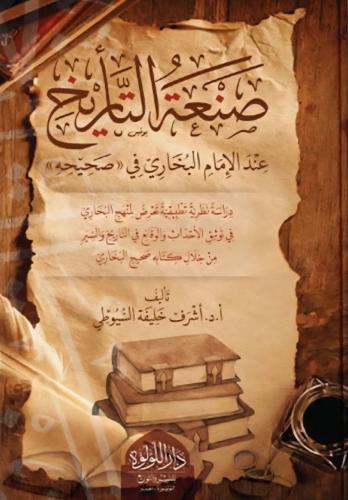 صَنْعَةُ التَّأْرِيخِ
عِنْدَ الإِمَامِ البُخَارِيِّ فِي «صَحِيحِهِ»
دِرَاسَةٌ نَظَرِيَّةٌ تَطْبِيقِيَّةٌ تَعْرِضُ لِمَنْهَجِ البُخَارِيِّ
فِي تَوْثِيقِ الأَحْدَاثِ وَالوَقَائِعِ فِي التَّارِيخِ وَالسِّيَرِ
مِنْ خِلَالِ كِتَابِهِ صَحِيحِ البُخَارِيِّ
تَأْلِيفُ
أ.د. أَشْرَف خَلِيفَة السُّيُوطِي
دَارُ اللُّؤْلُؤَة
للنشر والتوزيع